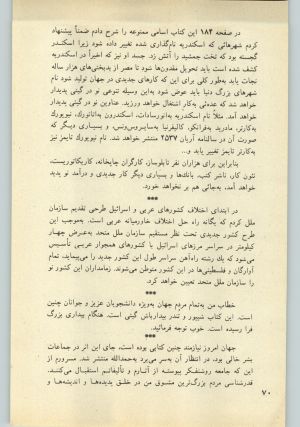 در صفحه ۱۸۴ این کتاب اسامی ممنوعه را شرح دادم ضمناً پیشنهاد
کردم شهرهائی که اسکندریه نام‌گذاری شده تغییر داده شود زیرا اسکندر
گجسته بود که تخت جمشید را آتش زد. جسد او نیز که اخیراً در اسکندریه
کشف شده است باید تحویل مقدونی‌ها شود تا مصر از بدبختی‌های هزار ساله
نجات یابد به‌طور کلی برای این که کارهای جدیدی در جهان تولید شود نام
شهرهای بزرگ دنیا باید عوض شود به‌این وسیله تنوعی نو در گیتی پدیدار
خواهد شد که عده‌ئی به‌کار اشتغال خواهند ورزید. عناوین نو در گیتی پدید
خواهد آمد. مثلاً نام اسکندریه به‌انورسادات، اسکندرون به‌اتاتورک، نیویورک
به‌کارتر، مادرید به‌فرانکو، کالیفرنیا به‌سایروس‌ونس، و بسیاری دیگر که
صورت آن در سالنامه آریان ۲۵۳۷ منتشر خواهد شد. نام نیویورک تایمز نیز
به‌کارتر تایمز تغییر یابد و...
بنابراین برای هزاران نفر تابلوساز، کارگران چاپخانه، کاریکاتوریست،
نئون کار، ناشر کتب، بانک‌ها و بسیاری دیگر کار جدیدی و درآمد نو پدید
خواهد آمد، به‌جائی هم بر نخواهد خورد.
***
در ابتدای اختلاف کشورهای عربی و اسرائیل طرحی تقدیم سازمان
ملل کردم که یگانه راه حل اختلاف خاورمیانه عربی است. به‌موجب این
طرح کشور جدیدی تحت نظر مستقیم سازمان ملل متحد به‌عرض چهار
کیلومتر در سراسر مرزهای اسرائیل با کشورهای همجوار عربی تأسیس
می‌شود که یک رشته راه‌آهن سراسر طول این کشور جدید را می‌پیماید، تمام
آوارگان و فلسطینی‌ها در این کشور متوطن می‌شوند. زمامداران این کشور نو
را سازمان ملل متحد تعیین خواهد کرد.
***
خطاب من به‌تمام مردم جهان به‌ویژه دانشجویان عزیز و جوانان چنین
است. این کتاب شیپور و تندر بیدارباش گیتی است. هنگام بیداری بزرگ
فرا رسیده است. خوب توجه فرمائید.
***
جهان امروز نیازمند چنین کتابی بوده است، جای این اثر در جماعات
بشر خالی بود، در انتظار آن به‌سر می‌برد به‌حمدالله منتشر شد. مسرورم از
این که جامعه روشنفکر پیوسته از آثارم و تألیفاتم استقبال می‌کنند.
قدرشناسی مردم بزرگ‌ترین مشوق من در خلق پدیده‌ها و اندیشه‌ها و
۷۰